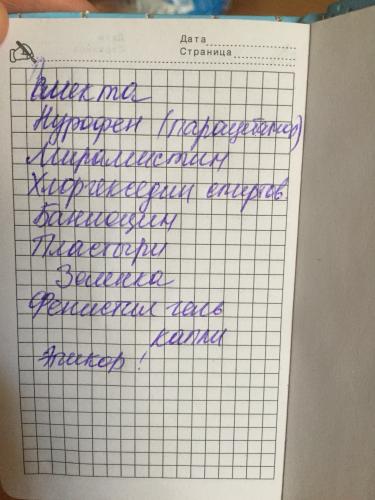 Дата
Страница
Смекта
Нурофен (парацетамол)
Мирамистин
Хлоргекседин спиртов
Банеоцин
Пластыри
Зеленка
Фенистил гель
капли
!